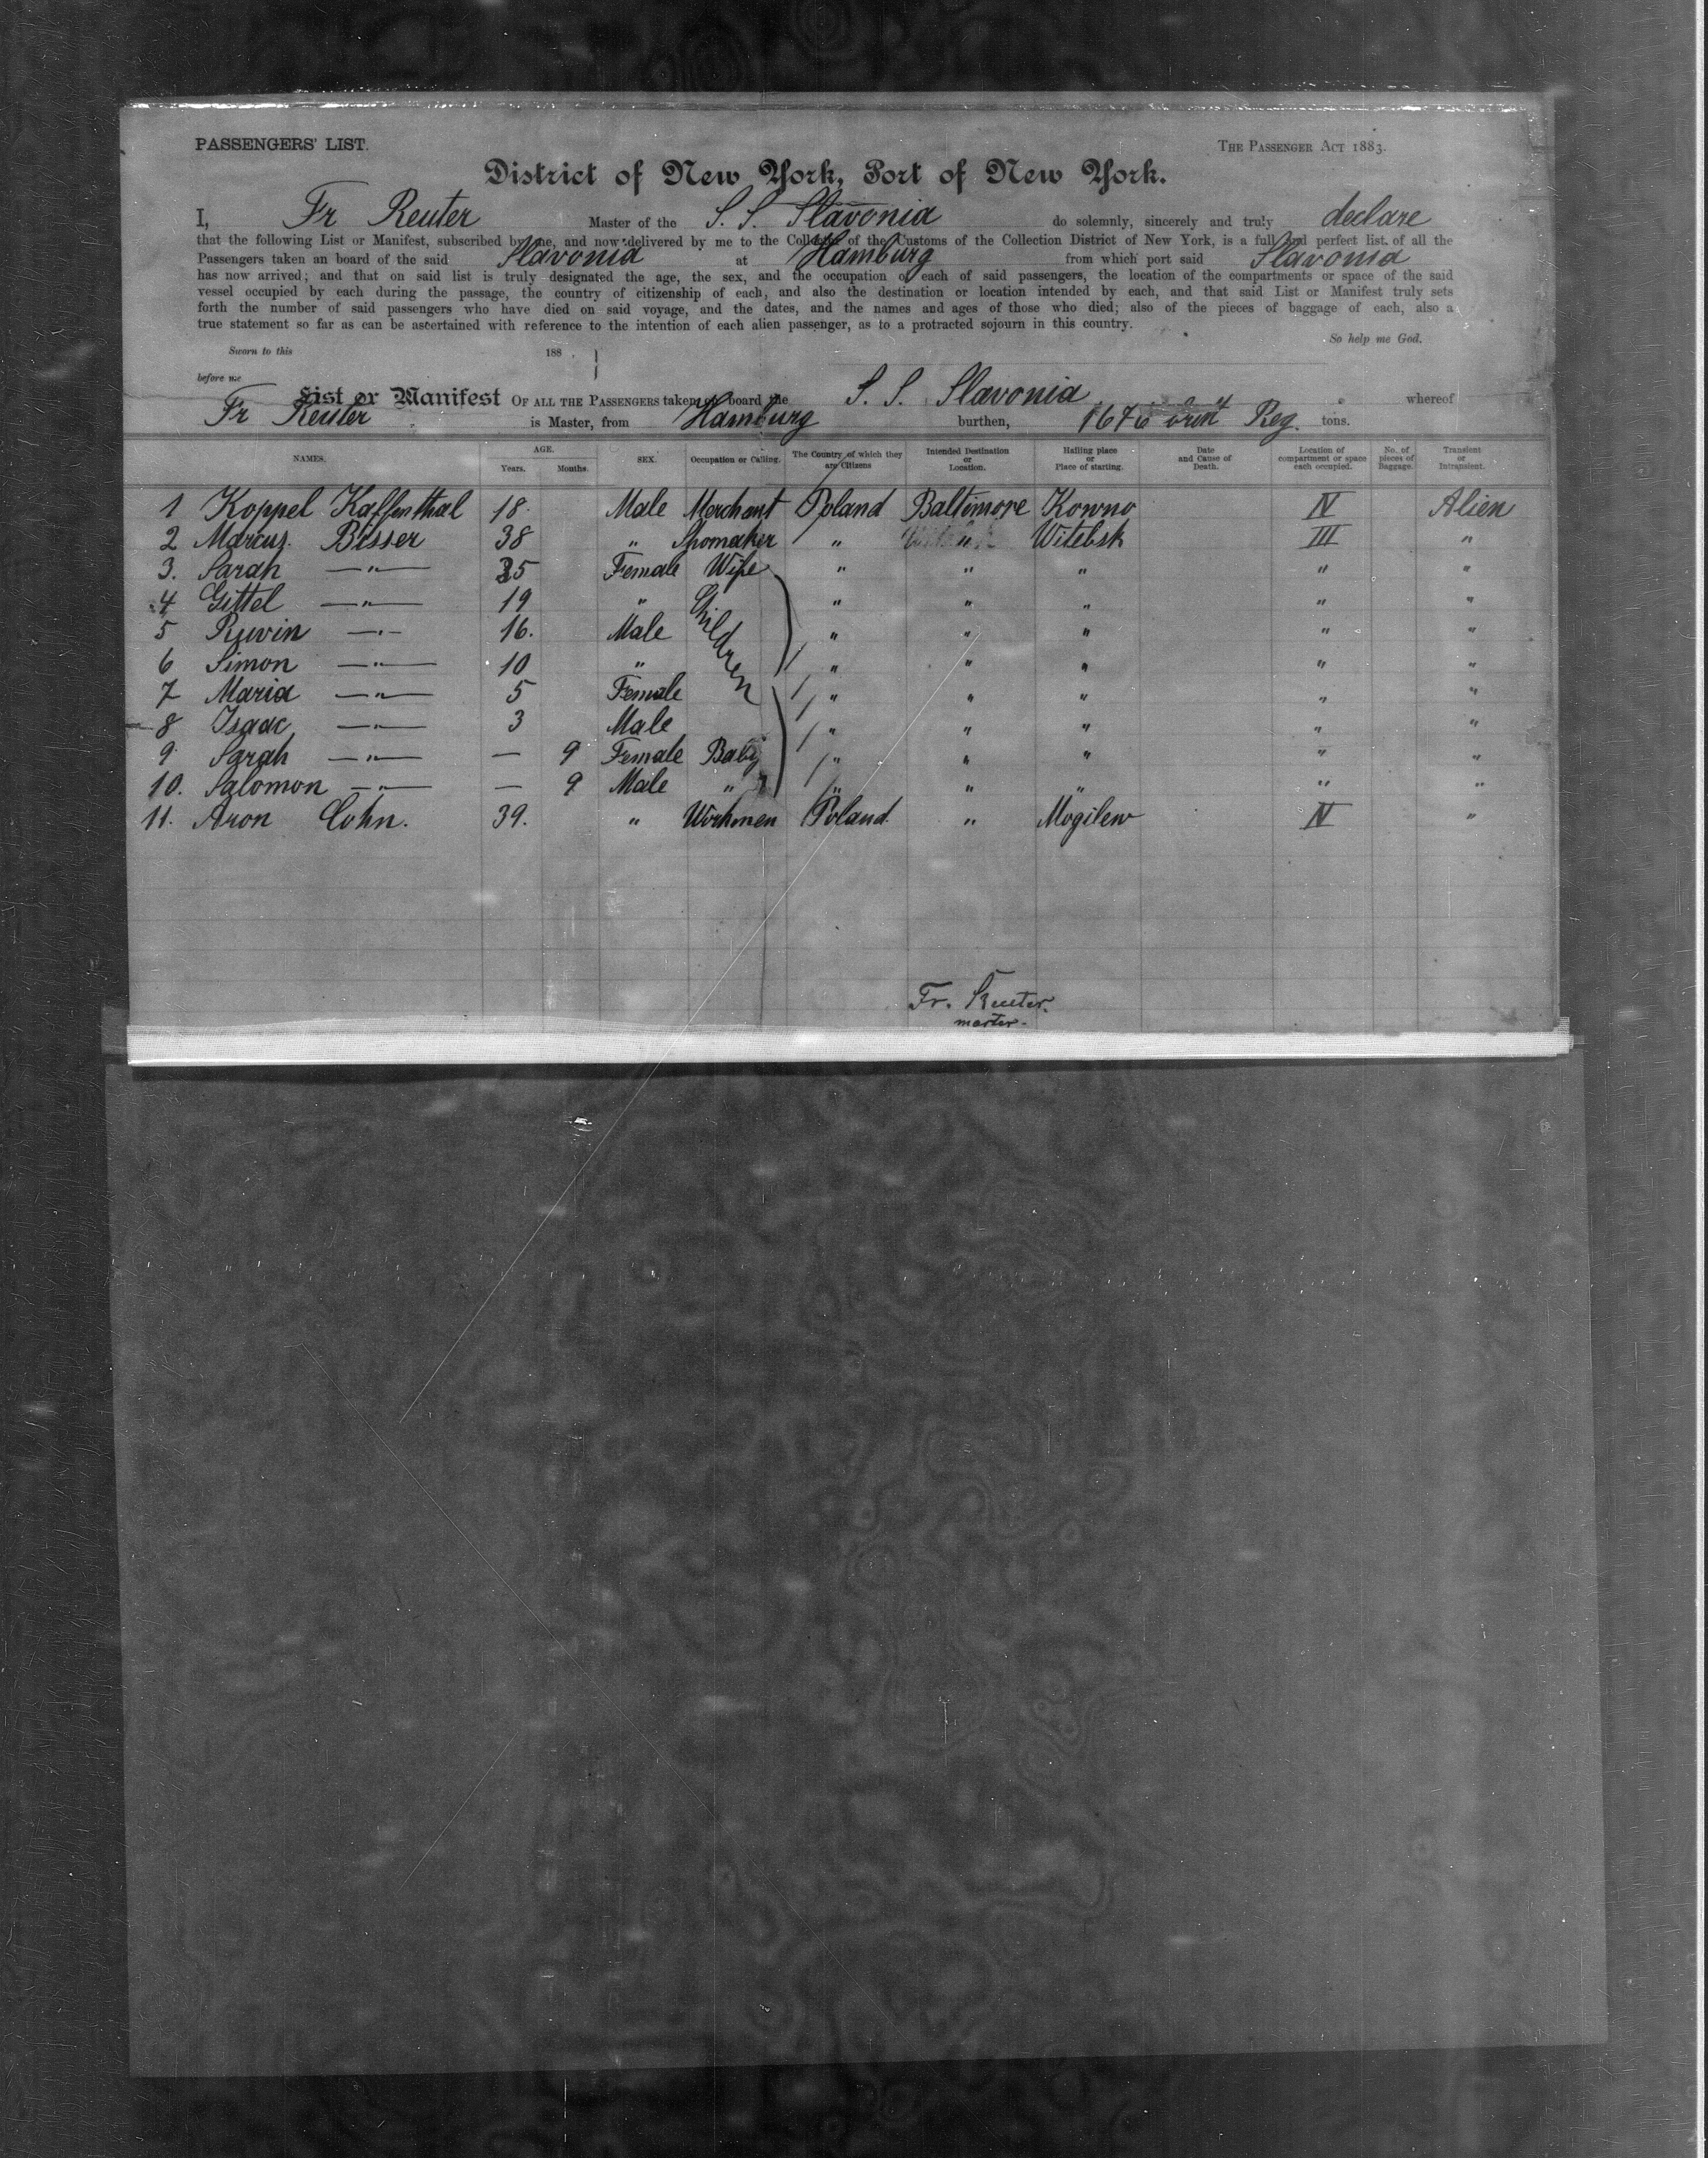 PASSENGERS' LIST. THE PASSENGER ACT 1883.
District of New York, Port of New York.
I, Fr Reuter Master of the S. S. Slavonia do solemnly, sincerely and truly declare
that the following List or Manifest, subscribed by me, and now delivered by me to the Collector of the Customs of the Collection District of New York, is a full and perfect list of all the
Passengers taken an board of the said Slavonia at Hamburg from which port said Slavonia
has now arrived; and that on said list is truly designated the age, the sex, and the occupation of each of said passengers, the location of the compartments or space of the said
vessel occupied by each during the passage, the country of citizenship of each, and also the destination or location intended by each, and that said List or Manifest truly sets
forth the number of said passengers who have died on said voyage, and the dates, and the names and ages of those who died; also of the pieces of baggage of each, also a
true statement so far as can be ascertained with reference to the intention of each alien passenger, as to a protracted sojourn in this country.
So help me God.
Sworn to this 188
before me
List or Manifest OF ALL THE PASSENGERS taken on board the S. S. Slavonia whereof
Fr Reuter is Master, from Hamburg burthen, 1676 Reg. tons.
NAMES. AGE. Years. Months. SEX. Occupation or Calling. The Country of which they are Citizens Intended Destination or Location. Hailing place or Place of starting. Date and Cause of Death. Location of compartment or space each occupied. No. of pieces of Baggage. Transient or Intransient.
1 Koppel Kaffenthal 18 Male Merchant Poland Baltimore Kowno IV Alien
2 Marcus Bisser 38 " Shomaker " " Witebsk III "
3. Sarah —"— 35 Female Wife " " " " "
4 Gittel —"— 19 " Children " " " " "
5 Ruvin —"— 16. Male " " " " "
6 Simon —"— 10 " " " " " "
7 Maria —"— 5 Female " " " " "
8 Isaac —"— 3 Male " " " " "
9 Sarah —"— — 9 Female Baby " " " " "
10. Salomon —"— — 9 Male " " " " " "
11. Aron Cohn. 39. " Workmen Poland " Mogilew IV "
Fr. Reuter.
master.